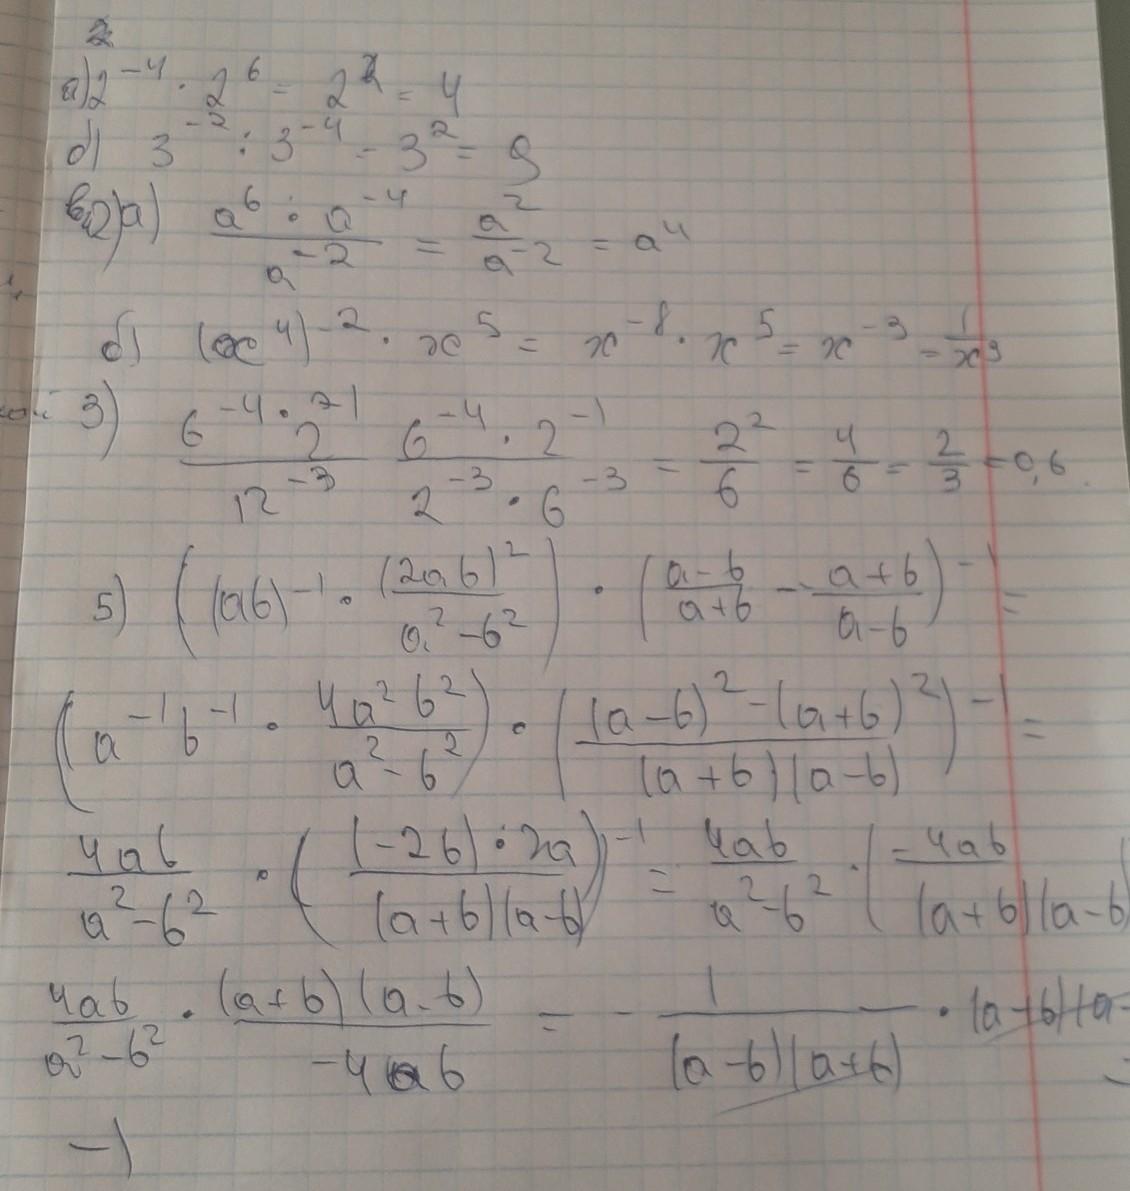 2
а) 2^-4 · 2^6 = 2^2 = 4
б) 3^-2 : 3^-4 - 3^2 = 9
2) а) (a^6 · a^-4) / a^-2 = a^2 / a^-2 = a^4
б) (x^4)^-2 · x^5 = x^-8 · x^5 = x^-3 = 1/x^3
3) (6^-4 · 2^-1) / 12^-3 (6^-4 · 2^-1) / (2^-3 · 6^-3) = 2^2 / 6 = 4/6 = 2/3 = 0,6
5) ((ab)^-1 · (2ab)^2 / (a^2 - b^2)) · ((a-b)/(a+b) - (a+b)/(a-b))^-1 =
(a^-1 b^-1 · 4a^2 b^2 / (a^2 - b^2)) · (((a-b)^2 - (a+b)^2) / ((a+b)(a-b)))^-1 =
4ab / (a^2 - b^2) · ((-2b) · 2a / ((a+b)(a-b)))^-1 = 4ab / (a^2 - b^2) · (-4ab / (a+b)(a-b)
4ab / (a^2 - b^2) · (a+b)(a-b) / -4ab = - 1 / ((a-b)(a+b)) · (a+b)(a-
-1